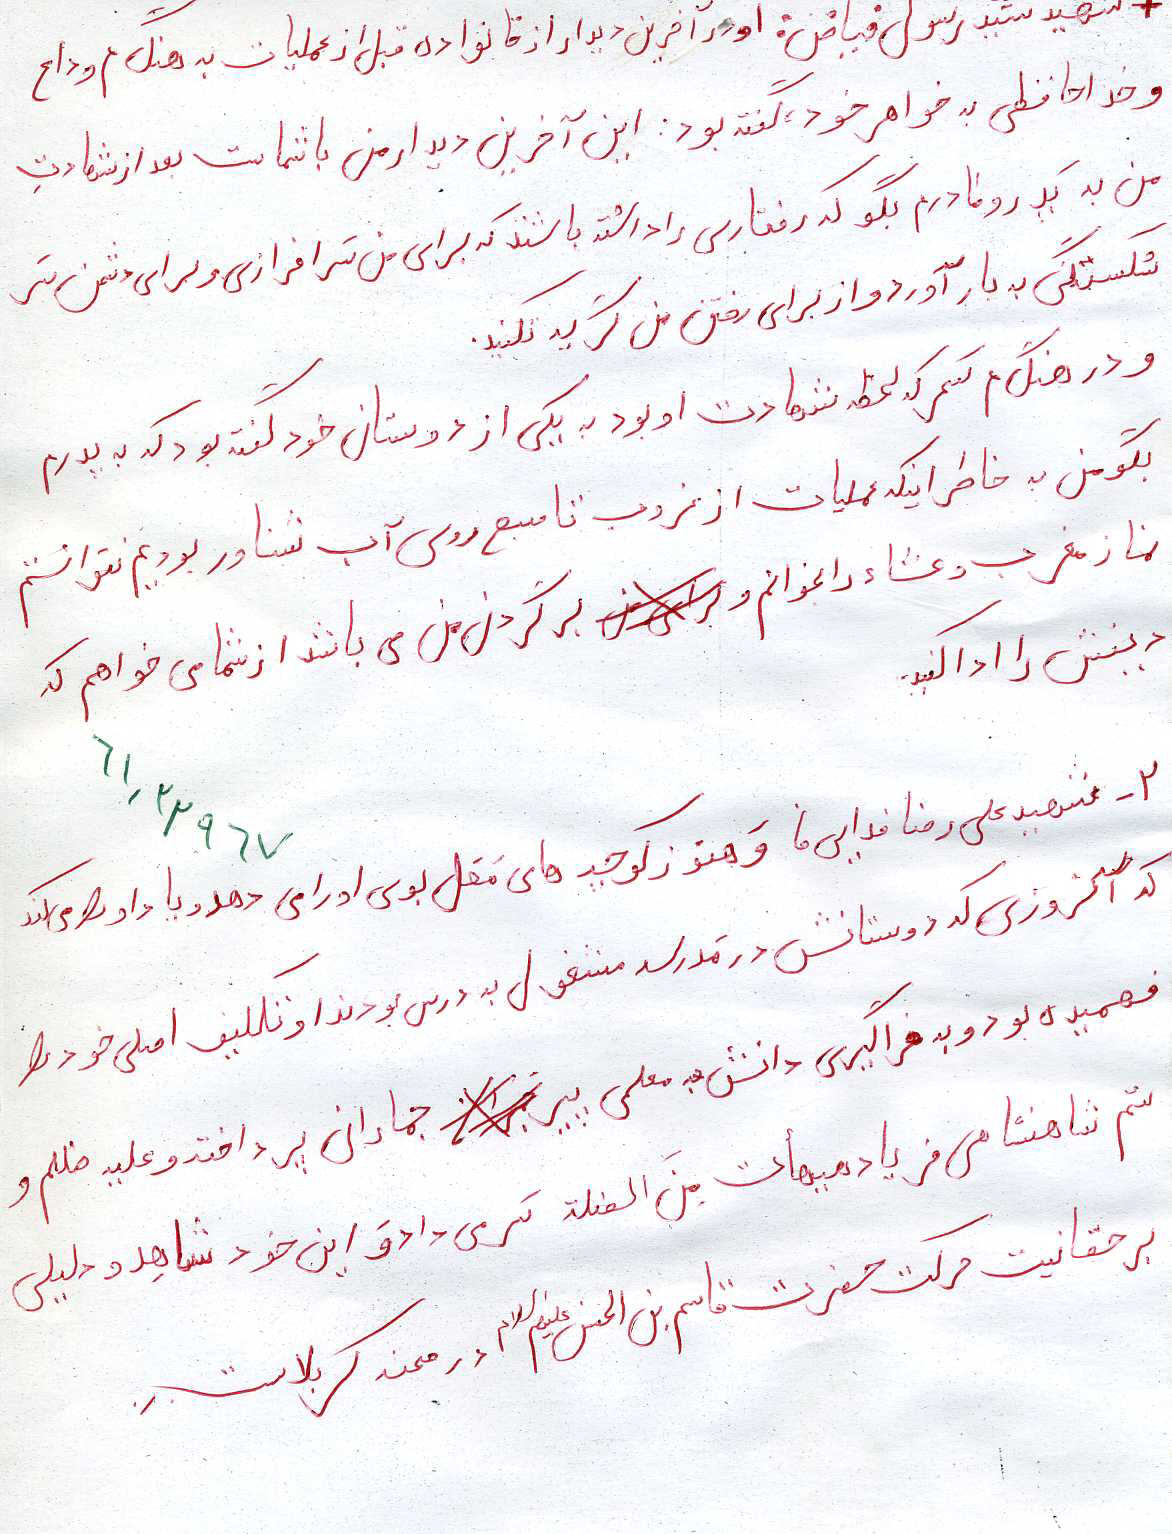 + شهید سید رسول فیاض: او در آخرین دیدار از خانواده قبل از عملیات به هنگام وداع
و خداحافظی به خواهر خود، گفته بود: این آخرین دیدار من با شماست بعد از شهادتِ
من به پدر و مادرم بگو که رفتاری را داشته باشند که برای من سرافرازی و برای دشمن سر
شکستگی به بار آورد و از برای رفتن من گریه نکنید.
و در هنگام سحر که لحظه شهادت او بود به یکی از دوستان خود گفته بود که به پدرم
بگو من به خاطر اینکه عملیات از غروب تا صبح روی آب شناور بودیم نتوانستم
نماز مغرب و عشاء را بخوانم و بر گردن من می باشد از شما می خواهم که
دینش را ادا کنید.
۶۱۰۳۳۹۶۷
۲- شهید علی رضا فدایی فا و هنوز کوچه های محل بوی او را می دهد و یاد او را می کند
که آنروزی که دوستانش در مدرسه مشغول به درس بودند او تکلیف اصلی خود را
فهمیده بود و به فراگیری دانش به معلمی پیر جماران پرداخته و علیه ظلم و
ستم شاهنشاهی فریاد هیهأت مِنَ الذلة سر می داد وَ این خود شاهد و دلیلی
بر حقانیت حرکت حضرت قاسم بن الحسن علیهم السلام در صحنه کربلاست.